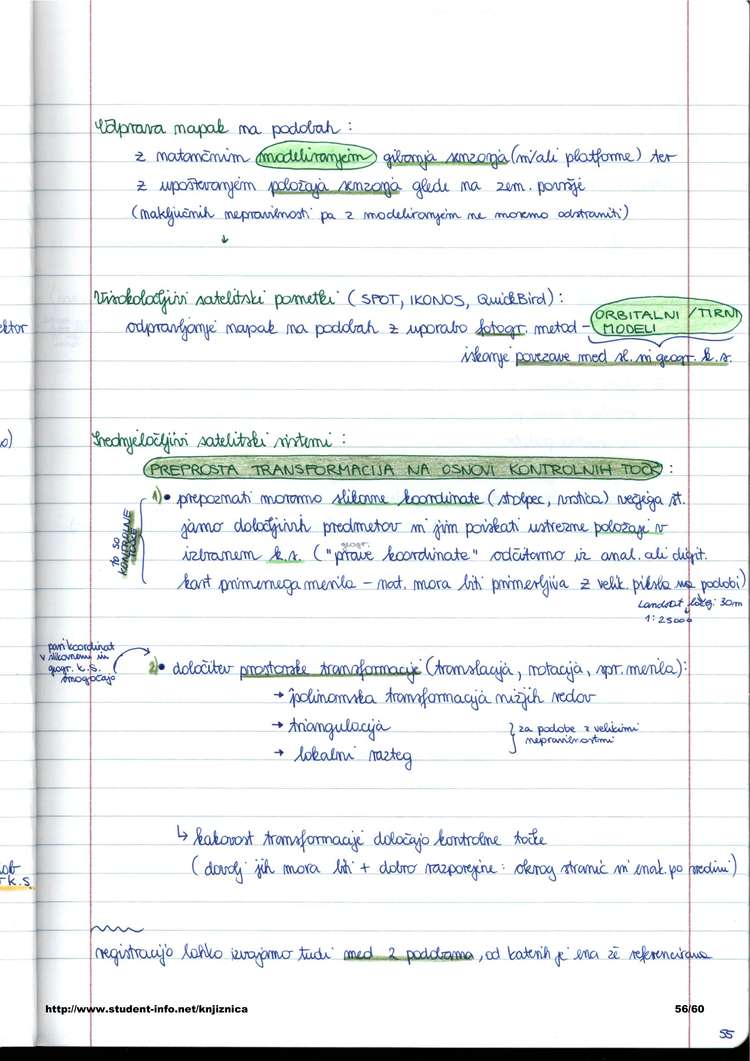 Odprava napak na podobah :
z natančnim modeliranjem gibanja senzorja (in/ali platforme) ter
z upoštevanjem položaja senzorja glede na zem. površje
(naključnih nepravilnosti pa z modeliranjem ne moremo odstraniti)
↓
Visokoločljivi satelitski posnetki (SPOT, IKONOS, QuickBird) :
odpravljanje napak na podobah z uporabo fotogr. metod - ORBITALNI / TIRNI
MODELI
iskanje povezave med sl. in geogr. k.s.
ektor
Srednjeločljivi satelitski sistemi :
PREPROSTA TRANSFORMACIJA NA OSNOVI KONTROLNIH TOČK :
1) • prepoznati moramo slikovne koordinate (stolpec, vrstica) večjega št.
jasno določljivih predmetov in jim poiskati ustrezne položaje v
geogr.
izbranem k.s. ("prave koordinate" odčitamo iz anal. ali digit.
kart primernega merila – nat. mora biti primerljiva z velik. piksla na podobi)
to so
KONTROLNE
TOČKE
Landsat, ločlj. 30m
↓
1 : 25000
pari koordinat
v slikovnem in
geogr. k.s.
omogočajo
2) • določitev prostorske transformacije (translacija, rotacija, spr. merila):
→ polinomska transformacija nižjih redov
→ triangulacija
→ lokalni razteg
za podobe z velikimi
nepravilnostmi
↳ kakovost transformacije določajo kontrolne točke
(dovolj jih mora biti + dobro razporejene : okrog stranic in enak. po sredini)
ob
k.s.
registracijo lahko izvajamo tudi med 2 podobama, od katerih je ena že referencirana
http://www.student-info.net/knjiznica
56/60
55